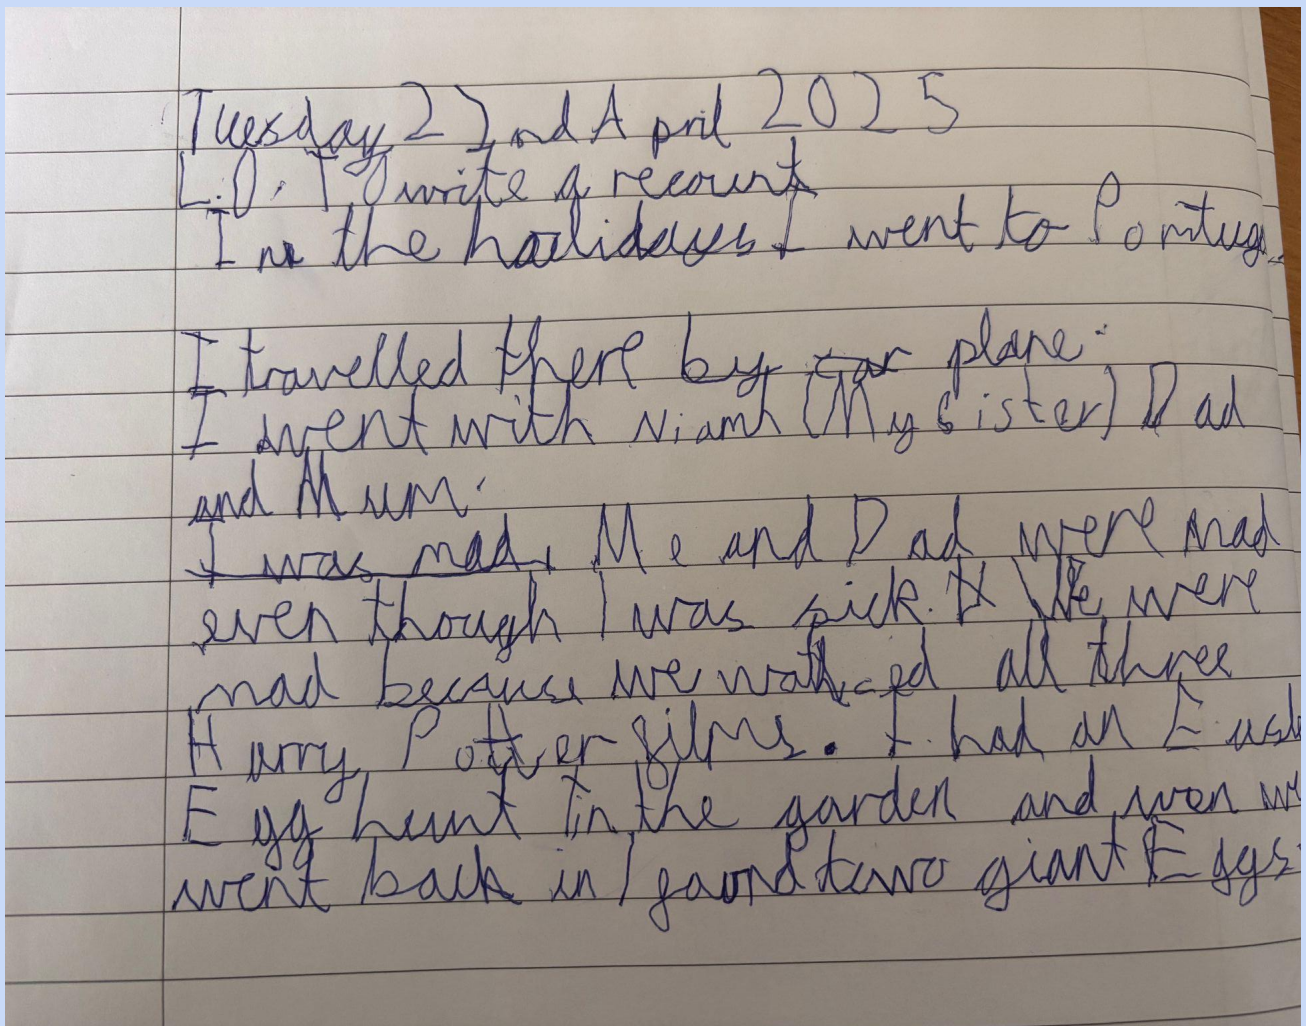 Tuesday 22nd April 2025
L.O. To write a recount
In the hoilidays I went to Pontug
I travelled there by car plane.
I went with Niamh (My sister) Dad
and Mum.
I was mad. Me and Dad were mad
even though I was sick. We were
mad because we wathced all three
Harry Potter films. I had an East
Egg hunt in the garden and wen we
went back in I found two giant Eggs